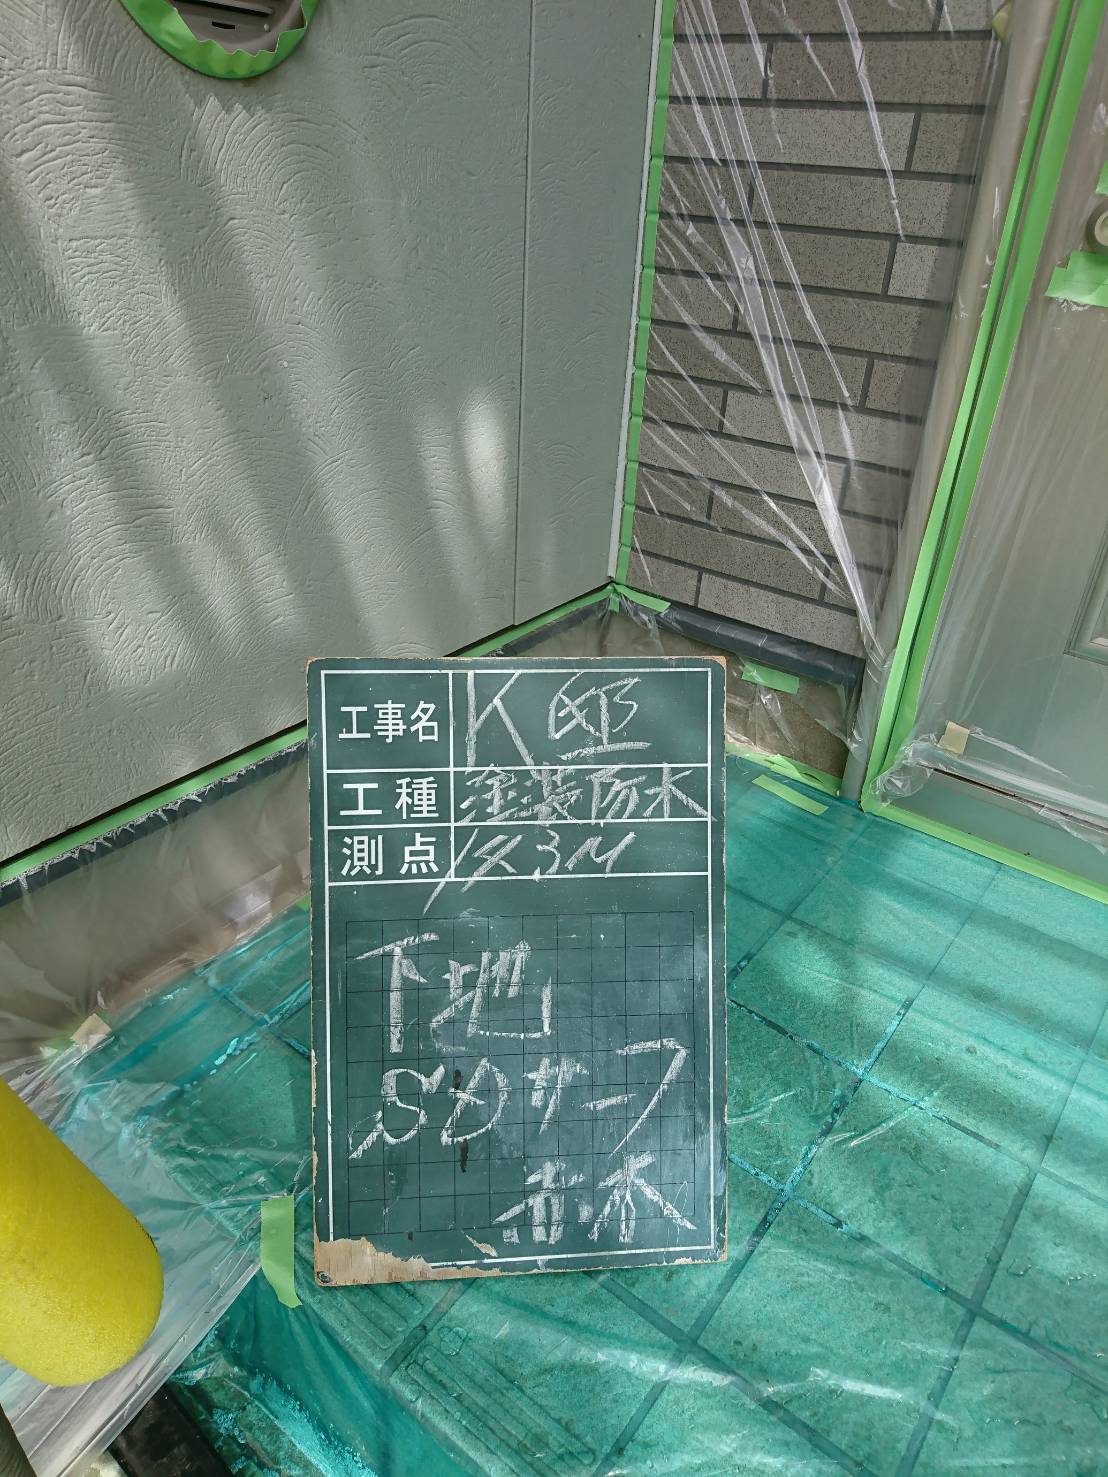 工事名 K邸
工種 塗装防水
測点
下地
SDサーフ